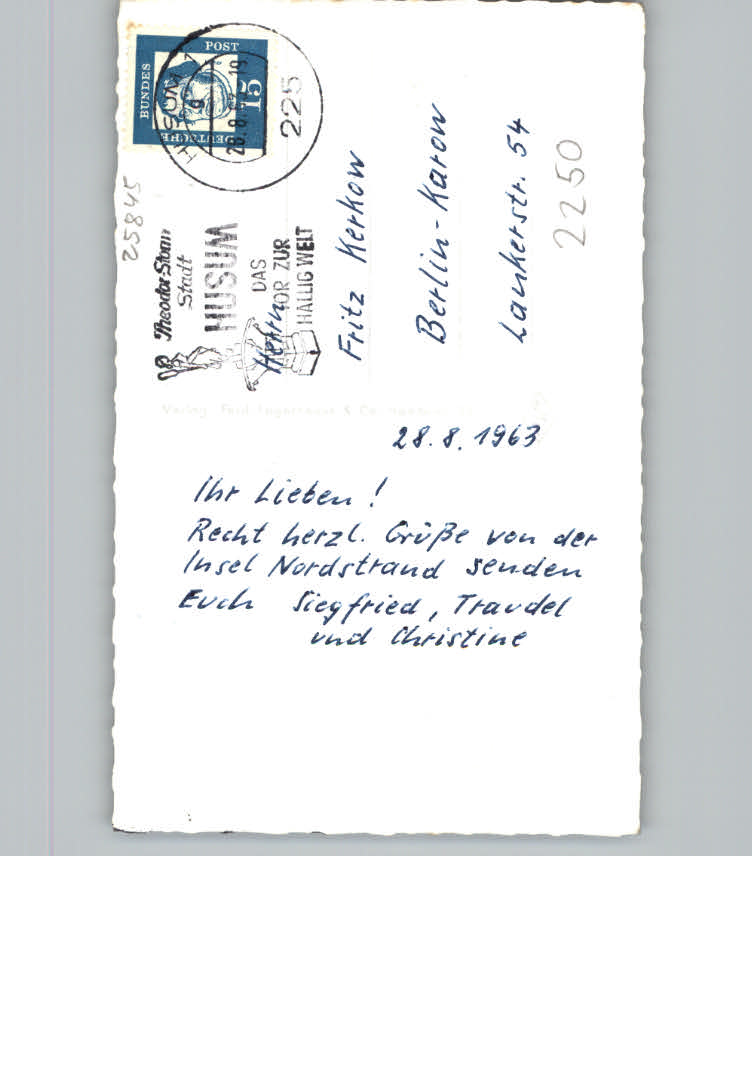 DEUTSCHE
BUNDES
POST
15
HUSUM 1
28.8.63-19
225
25845
Theodor-Storm
Stadt
HUSUM
DAS
TOR ZUR
HALLIG WELT
Herrn
Fritz Kerkow
Berlin-Karow
Lankerstr. 54
2250
Verlag
28.8.1963
Ihr Lieben!
Recht herzl. Grüße von der
Insel Nordstrand senden
Euch Siegfried, Traudel
und Christine